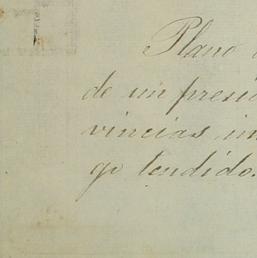 Plano
de un presi
vincias in
go tendido.